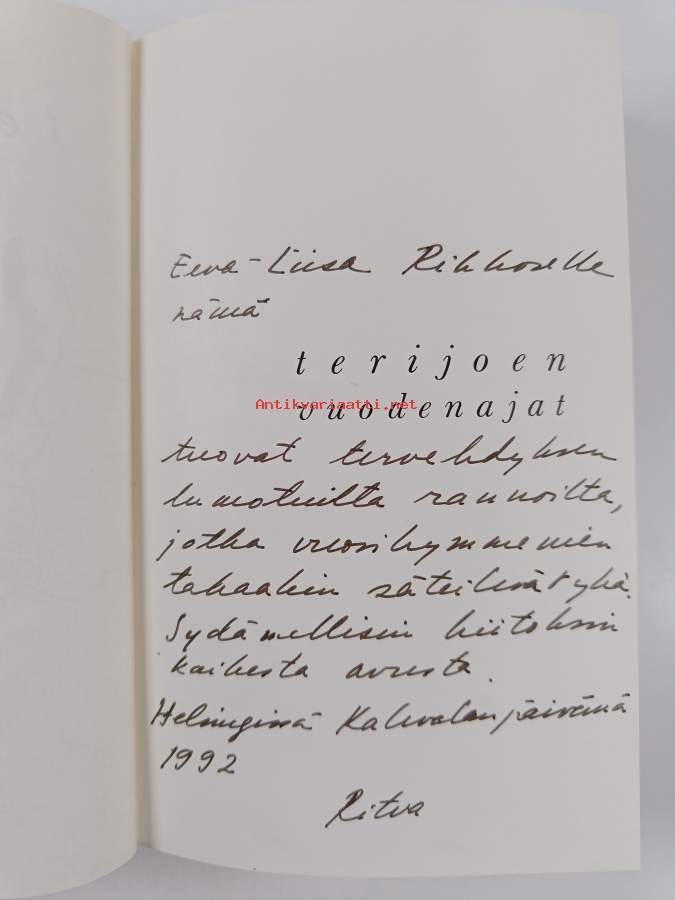 Eeva-Liisa Rikkoselle
nämä
terijoen
Antikvariaatti.net
vuodenajat
tuovat tervehdyksen
lumotuilta rannoilta,
jotka vuosikymmenien
takaakin säteilevät yhä.
Sydämellisin kiitoksin
kaikesta avusta.
Helsingissä Kalevalan päivänä
1992
Ritva